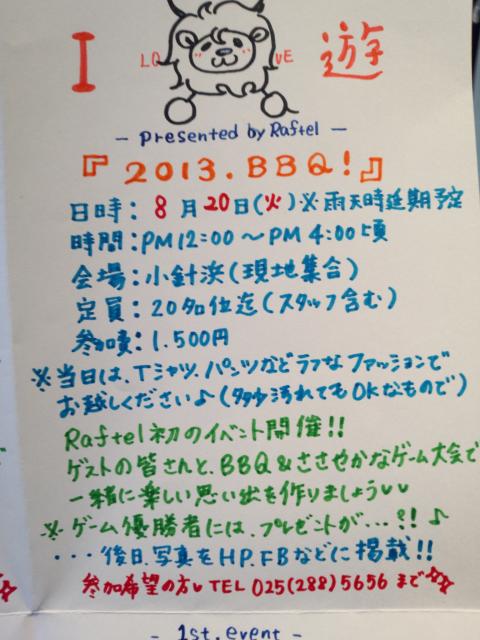 I LOVE 遊
- Presented by Raftel -
『2013.BBQ!』
日時：8月20日(火)※雨天時延期予定
時間：PM12:00～PM4:00頃
会場：小針浜(現地集合)
定員：20名位迄(スタッフ含む)
参加費：1.500円
※当日は、Tシャツ、パンツなどラフなファッションで
お越しください♪(多少汚れてもOKなもので)
Raftel初のイベント開催!!
ゲストの皆さんと、BBQ&ささやかなゲーム大会で
一緒に楽しい思い出を作りましょう
※ゲーム優勝者には、プレゼントが...!? ♪
・・・後日、写真をHP.FBなどに掲載!!
参加希望の方 TEL 025(288)5656 まで☆☆
- 1st.event -